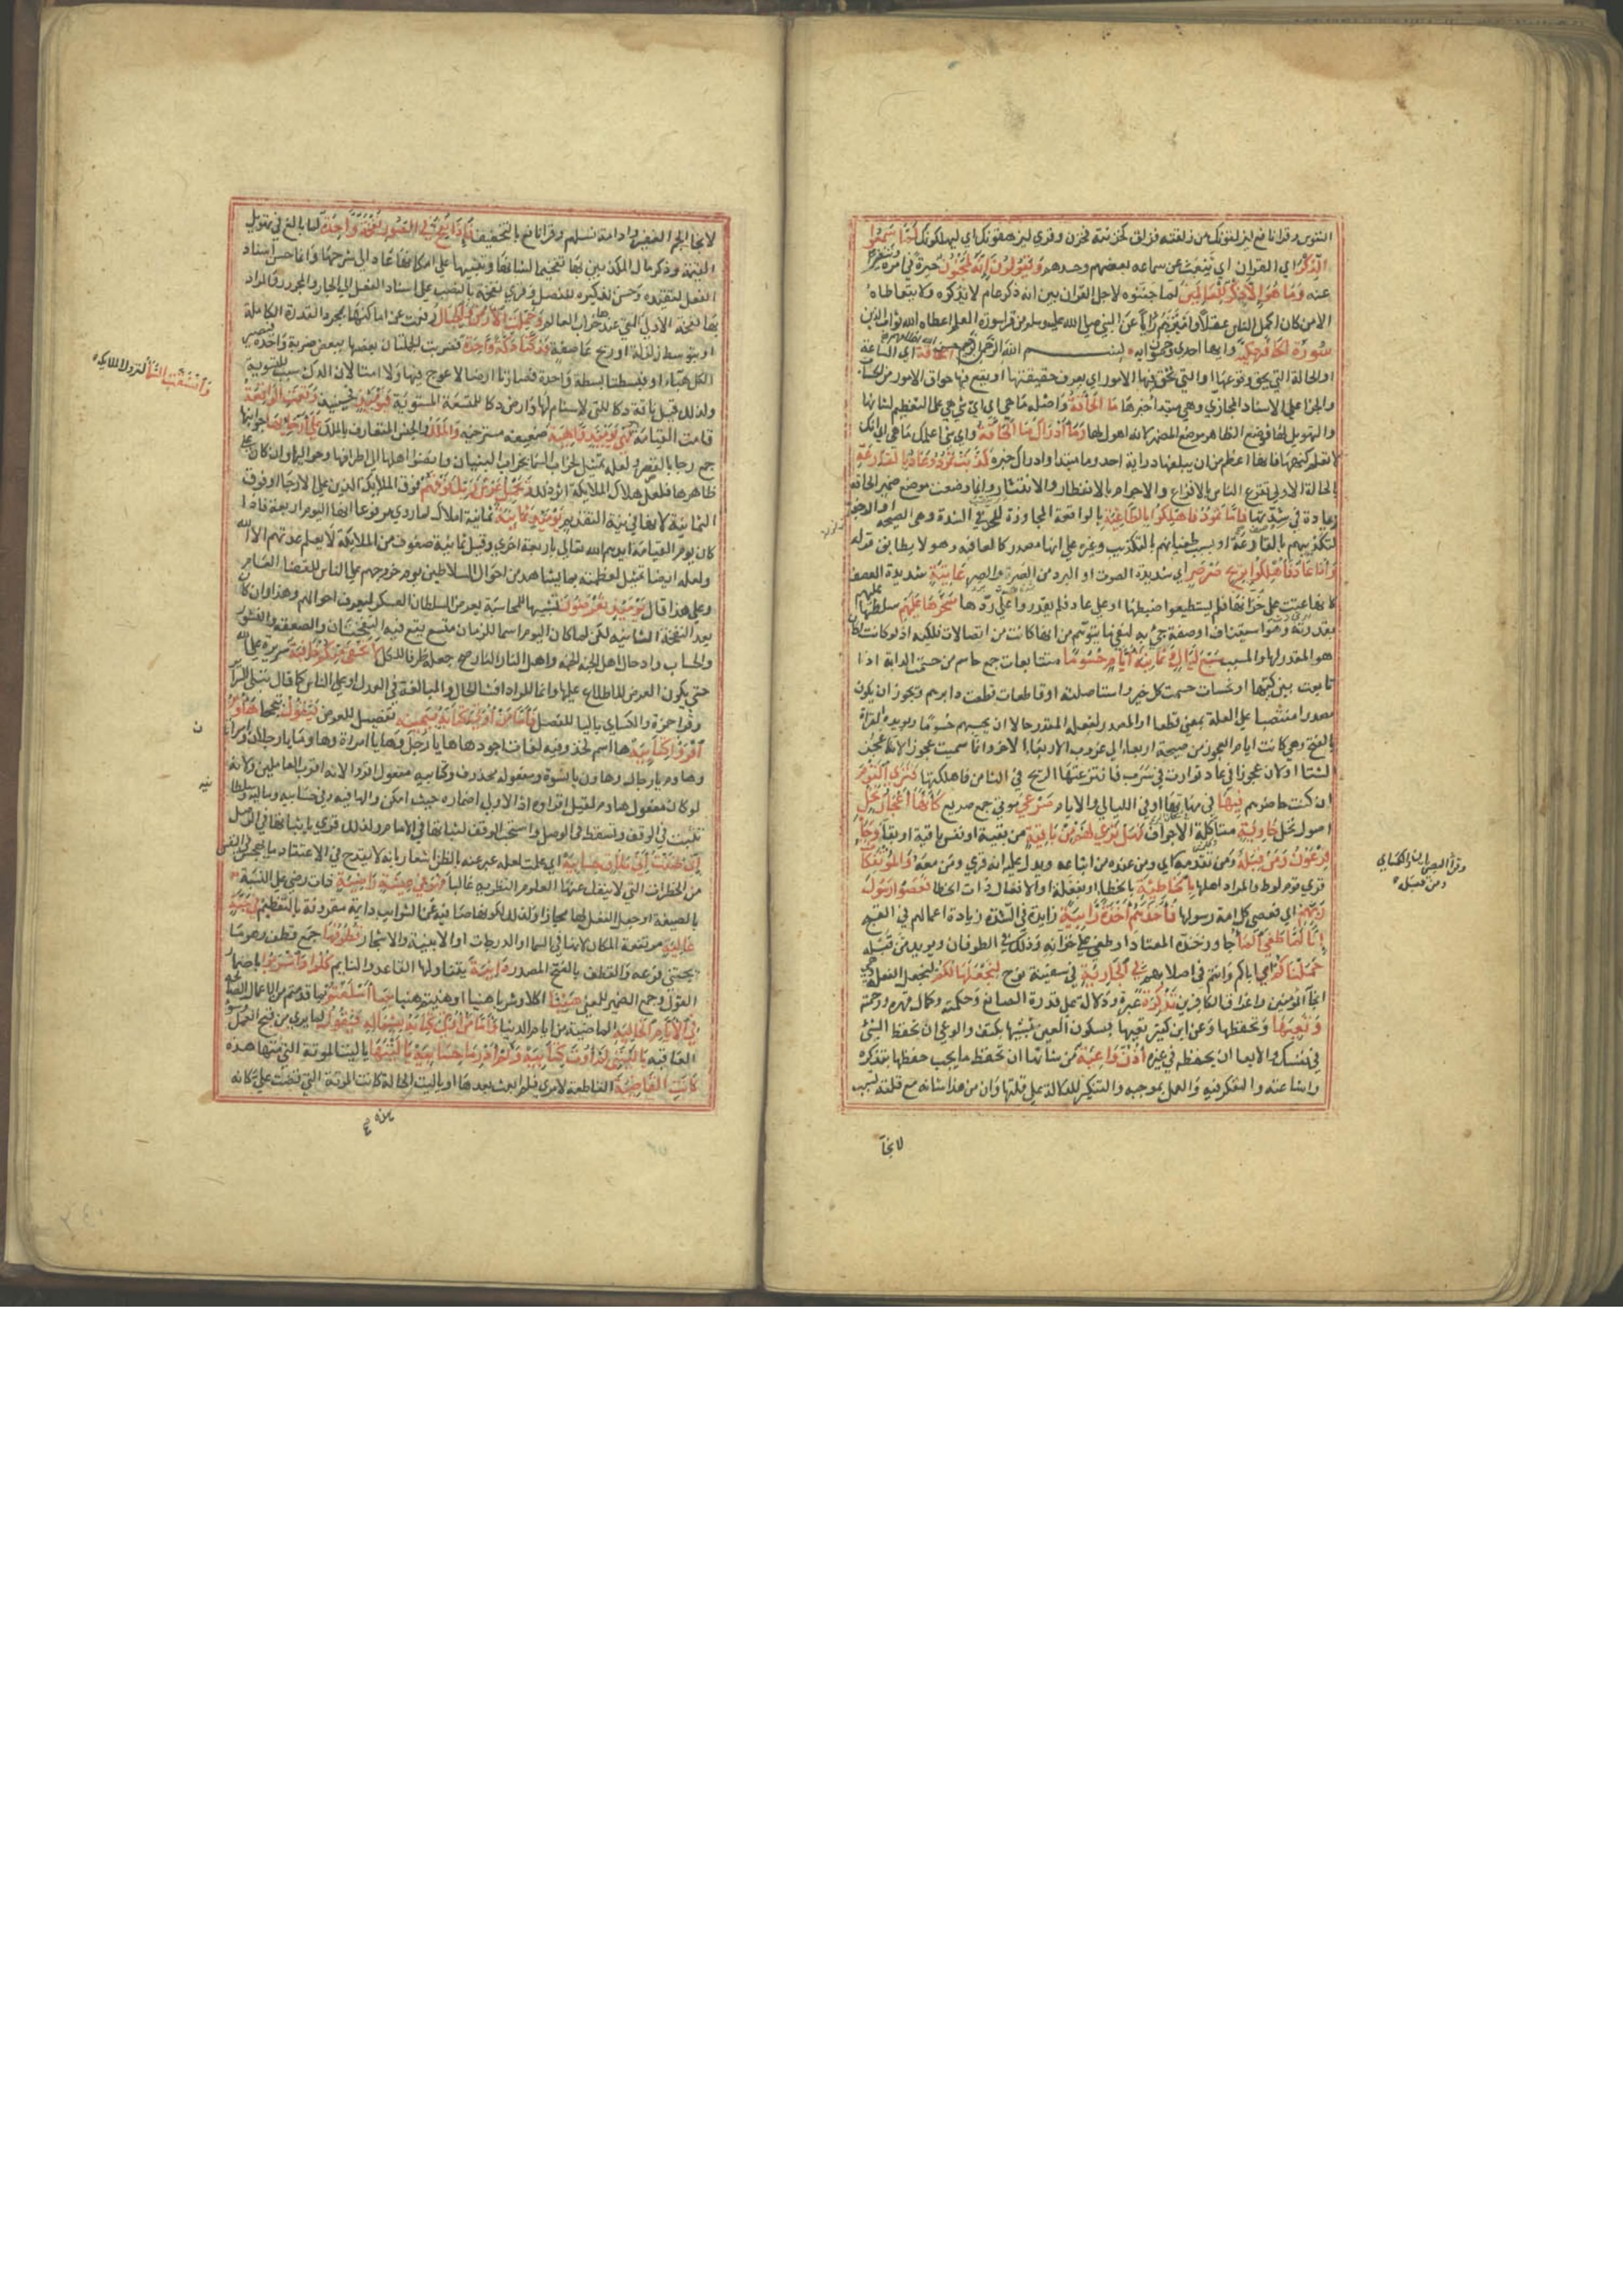 النفوس وقرأ نافع ليزلقونك من زلقته فزلق كحزنته فحزن وقري ليزهقونك اي ليهلكونك لما سمعوا
الذكر اي القران اي ينبعث عن سماعه بغضهم وحسدهم ويقولون انه لمجنون حيرة في امره وتنفيرا
عنه وما هو الا ذكر للعالمين لما جننوه لاجل القران بين انه ذكر عام لا يدركه ولا يتعاطاه
الا من كان اكمل الناس عقلا وامتنهم رايا عن النبي صلى الله عليه وسلم من قرا سورة القلم اعطاه الله ثواب الذين
سورة الحاقة مكية وايها احدى وخمسون اية بسم الله الرحمن الرحيم الحاقة اي الساعة
او الحالة التي يحق وقوعها او التي تحق فيها الامور اي يعرف حقيقتها او يقع فيها حواق الامور من الحساب
والجزا على الاسناد المجازي وهي مبتدا خبرها ما الحاقة واصله ما هي اي اي شي هي على التعظيم لشانها
والتهويل لها فوضع الظاهر موضع المضمر لانه اهول لها وما ادراك ما الحاقة واي شي اعلمك ما هي اي انك
لا تعلم كنهها فانها اعظم من ان يبلغها دراية احد وما مبتدا وادراك خبره كذبت ثمود وعاد بالقارعة
بالحالة الاولى تقرع الناس بالافزاع والاجرام بالانفطار والانتثار وانما وضعت موضع ضمير الحاقة
زيادة في شدتها فاما ثمود فاهلكوا بالطاغية بالواقعة المجاوزة للحد في الشدة وهي الصيحة او الرجفة
لتكذيبهم بالقارعة او بسبب طغيانهم بالتكذيب وغيره على انها مصدر كالعافية وهو لا يطابق قوله
واما عاد فاهلكوا بريح صرصر اي شديدة الصوت او البرد من الصرة والصر عاتية شديدة العصف
كانها عتت على خزانها فلم يستطيعوا ضبطها او على عاد فلم يقدروا على ردها سخرها عليهم سلطها عليهم
بقدرته وهو استيناف او صفة جي به لنفي ما يتوهم من انها كانت من اتصالات فلكية اذ لو كانت لكان
هو المقدر لها والمسبب سبع ليال وثمانية ايام حسوما متتابعات جمع حاسم من حسمت الدابة اذا
تابعت بين كيها او نحسات حسمت كل خير واستاصلته او قاطعات قطعت دابرهم ويجوز ان يكون
مصدرا منتصبا على العلة بمعنى قطعا او المصدر لفعله المقدر حالا اي يحسمهم حسوما ويؤيده القراة
بالفتح وهي كانت ايام العجوز من صبيحة اربعا الى غروب الاربعا الاخر وانما سميت عجوزا لانها عجز
الشتا او لان عجوزا في عاد توارت في سرب فانتزعتها الريح في الثامن فاهلكتها فترى القوم
ان كنت حاضرهم فيها في مهابها او في الليالي والايام صرعى موتى جمع صريع كانهم اعجاز نخل
اصول نخل خاوية متاكلة الاجواف فهل ترى لهم من باقية من بقية او نفس باقية او بقا وجا
فرعون ومن قبله ومن تقدمه اي ومن عنده من اتباعه ويدل عليه انه قري ومن معه والمؤتفكات
قرى قوم لوط والمراد اهلها بالخاطئة بالخطا او بفعلة او الافعال ذات الخطا فعصوا رسول
ربهم اي فعصى كل امة رسولها فاخذهم اخذة رابية زايدة في الشدة زيادة اعمالهم في القبح
انا لما طغى الما جاوز حده المعتاد او طغى على خزانه وذلك في الطوفان ويؤيد من قبله
حملناكم اي اباكم وانتم في اصلابهم في الجارية في سفينة نوح لنجعلها لكم لنجعل الفعلة وهي
انجا المؤمنين واغراق الكافرين تذكرة عبرة ودلالة على قدرة الصانع وحكمته وكمال قهره ورحمته
وتعيها وتحفظها وعن ابن كثير تعيها بسكون العين تشبيها بكتف والوعي ان تحفظ الشئ
في نفسك والايعا ان تحفظه في غيره اذن واعية من شانها ان تحفظ ما يجب حفظها بتذكره
واشاعته والتفكر فيه والعمل بموجبه والتنكير للدلالة على قلتها وان من هذا شانه مع قلته تسبب
لانجا
وقرا البصريان والكسائي
ومن قبله
لانجا الجم الغفير وادامة نسلهم وقرا نافع بالتخفيف فاذا نفخ في الصور نفخة واحدة لما بالغ في تهويل
القيمة وذكر مال المكذبين بها تفخيما لشانها وتنبيها على امكانها عاد الى شرحها وانما حسن اسناد
الفعل لتقيده وحسن تذكيره للفصل وقري نفخة بالنصب على اسناد الفعل الى الجار والمجرور والمراد
بها النفخة الاولى التي عندها خراب العالم وحملت الارض والجبال رفعت عن اماكنها بمجرد القدرة الكاملة
او بتوسط زلزلة او ريح عاصفة فدكتا دكة واحدة فضربت الجملتان بعضها ببعض ضربة واحدة فيصير
الكل هباء او فبسطتا بسطة واحدة فصارتا ارضا لا عوج فيها ولا امتا لان الدك سبب للتسوية
ولذلك قيل ناقة دكا للتي لا سنام لها وارض دكا للمتسعة المستوية فيومئذ فحينئذ وقعت الواقعة
قامت القيامة فهي يومئذ واهية ضعيفة مسترخية والملك والجنس المتعارف بالملك على ارجائها جوانبها
جمع رجا بالقصر ولعله تمثيل لخراب السما بخراب البنيان وانضوا اهلها الى اطرافها وحواليها وان كان على
ظاهرها فلعل هلاك الملائكة اثر ذلك ويحمل عرش ربك فوقهم فوق الملائكة الذين على الارجا او فوق
الثمانية لانها في نية التقديم يومئذ ثمانية ثمانية املاك لما روي مرفوعا انهم اليوم اربعة فاذا
كان يوم القيامة ايدهم الله تعالى باربعة اخرى وقيل ثمانية صفوف من الملائكة لا يعلم عدتهم الا الله
ولعله ايضا تمثيل لعظمته بما يشاهد من احوال السلاطين يوم خروجهم على الناس للقضا العام
وعلى هذا قال يومئذ تعرضون تشبيها للمحاسبة بعرض السلطان العسكر لتعرف احوالهم وهذا وان كان
بعد النفخة الثانية لكن لما كان اليوم اسما للزمان متسع يقع فيه النفختان والصعقة والنشور
والحساب وادخال اهل الجنة الجنة واهل النار النار صح جعله ظرفا للكل لا تخفى منكم خافية سريرة على الله
حتى يكون العرض للاطلاع عليها وانما المراد افشا الحال والمبالغة في العدل او على الناس كما قال تبلى السرائر
وقرا حمزة والكسائي باليا للفصل فاما من اوتي كتابه بيمينه تفصيل للعرض فيقول تبجحا هاؤم
اقرؤا كتابيه ها اسم لخذ وفيه لغات اجودها ها يا رجل وها يا امراة وهاؤما يا رجلان او امراتان
وهاؤم يا رجال وهاؤن يا نسوة ومفعوله محذوف وكتابيه مفعول اقرؤا لانه اقرب العاملين ولانه
لو كان مفعول هاؤم لقيل اقرؤه اذ الاولى اضماره حيث امكن والها فيه وفي حسابيه وماليه وسلطانيه
تثبت في الوقف وتسقط في الوصل واستحب الوقف لثباتها في الامام ولذلك قري باثباتها في الوصل
اني ظننت اني ملاق حسابيه اي علمت لعله عبر عنه بالظن اشعارا بانه لا يقدح في الاعتقاد ما يهجس في النفس
من الخطرات التي لا ينفك عنها العلوم النظرية غالبا فهو في عيشة راضية ذات رضى على النسبة
بالصيغة او جعل الفعل لها مجازا وذلك لكونها صافية عن الشوايب دائمة مقرونة بالتعظيم في جنة
عالية مرتفعة المكان لانها في السما او الدرجات او الابنية والاشجار قطوفها جمع قطف وهو ما
يجتنى بسرعة والقطف بالفتح المصدر دانية يتناولها القاعد والنايم كلوا واشربوا باضمار
القول وجمع الضمير للمعنى هنيئا اكلا وشربا هنيئا او هنيتم هنيئا بما اسلفتم بما قدمتم من الاعمال الصالحة
في الايام الخالية الماضية من ايام الدنيا واما من اوتي كتابه بشماله فيقول لما يرى من قبح العمل وسوء
العاقبة يا ليتني لم اوت كتابيه ولم ادر ما حسابيه يا ليتها يا ليت الموتة التي متها هذه
كانت القاضية القاطعة لامري فلم ابعث بعدها او يا ليت الحالة كانت الموتة التي قضت علي كانه
وانشقت السماء لنزول الملائكة